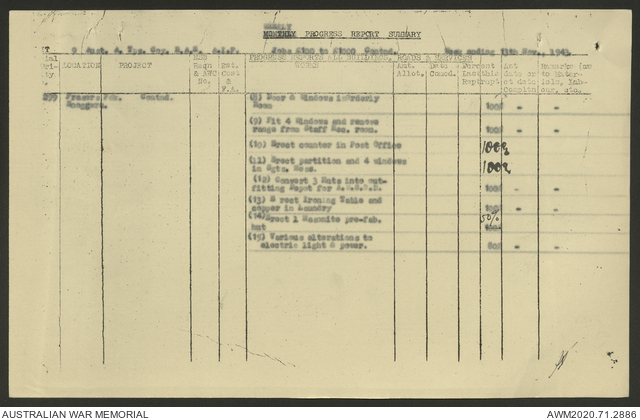 WEEKLY
MONTHLY PROGRESS REPORT SUMMARY
9 Aust. A. Tps. Coy. R.A.E. A.I.F. Jobs £100 to £1000 Contnd. Week ending 13th Nov., 1943.
PROGRESS REPORTS ALL BUILDINGS, ROADS & SERVICES
LOCATION PROJECT Est. Cost & F.A. WORKS Amt. Allot. Date Comcd. Percent Remarks
Contnd. (8) Door & Windows in Orderly
Room 100%
(9) Fit 4 Windows and remove
range from Staff Sec. room. 100%
(10) Erect counter in Post Office 100%
(11) Erect partition and 4 windows
in Sgts. Mess. 100%
(12) Convert 3 Huts into out-
fitting Depot for 100%
(13) Erect Ironing Table and
copper in Laundry 100%
(14) Erect 1 Masonite pre-fab. 50%
hut
(15) Various alterations to
electric light & power. 80%
AUSTRALIAN WAR MEMORIAL AWM2020.71.2886